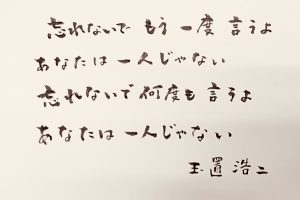 忘れないで もう一度 言うよ
あなたは 一人じゃない
忘れないで 何度も 言うよ
あなたは 一人じゃない
玉置浩二